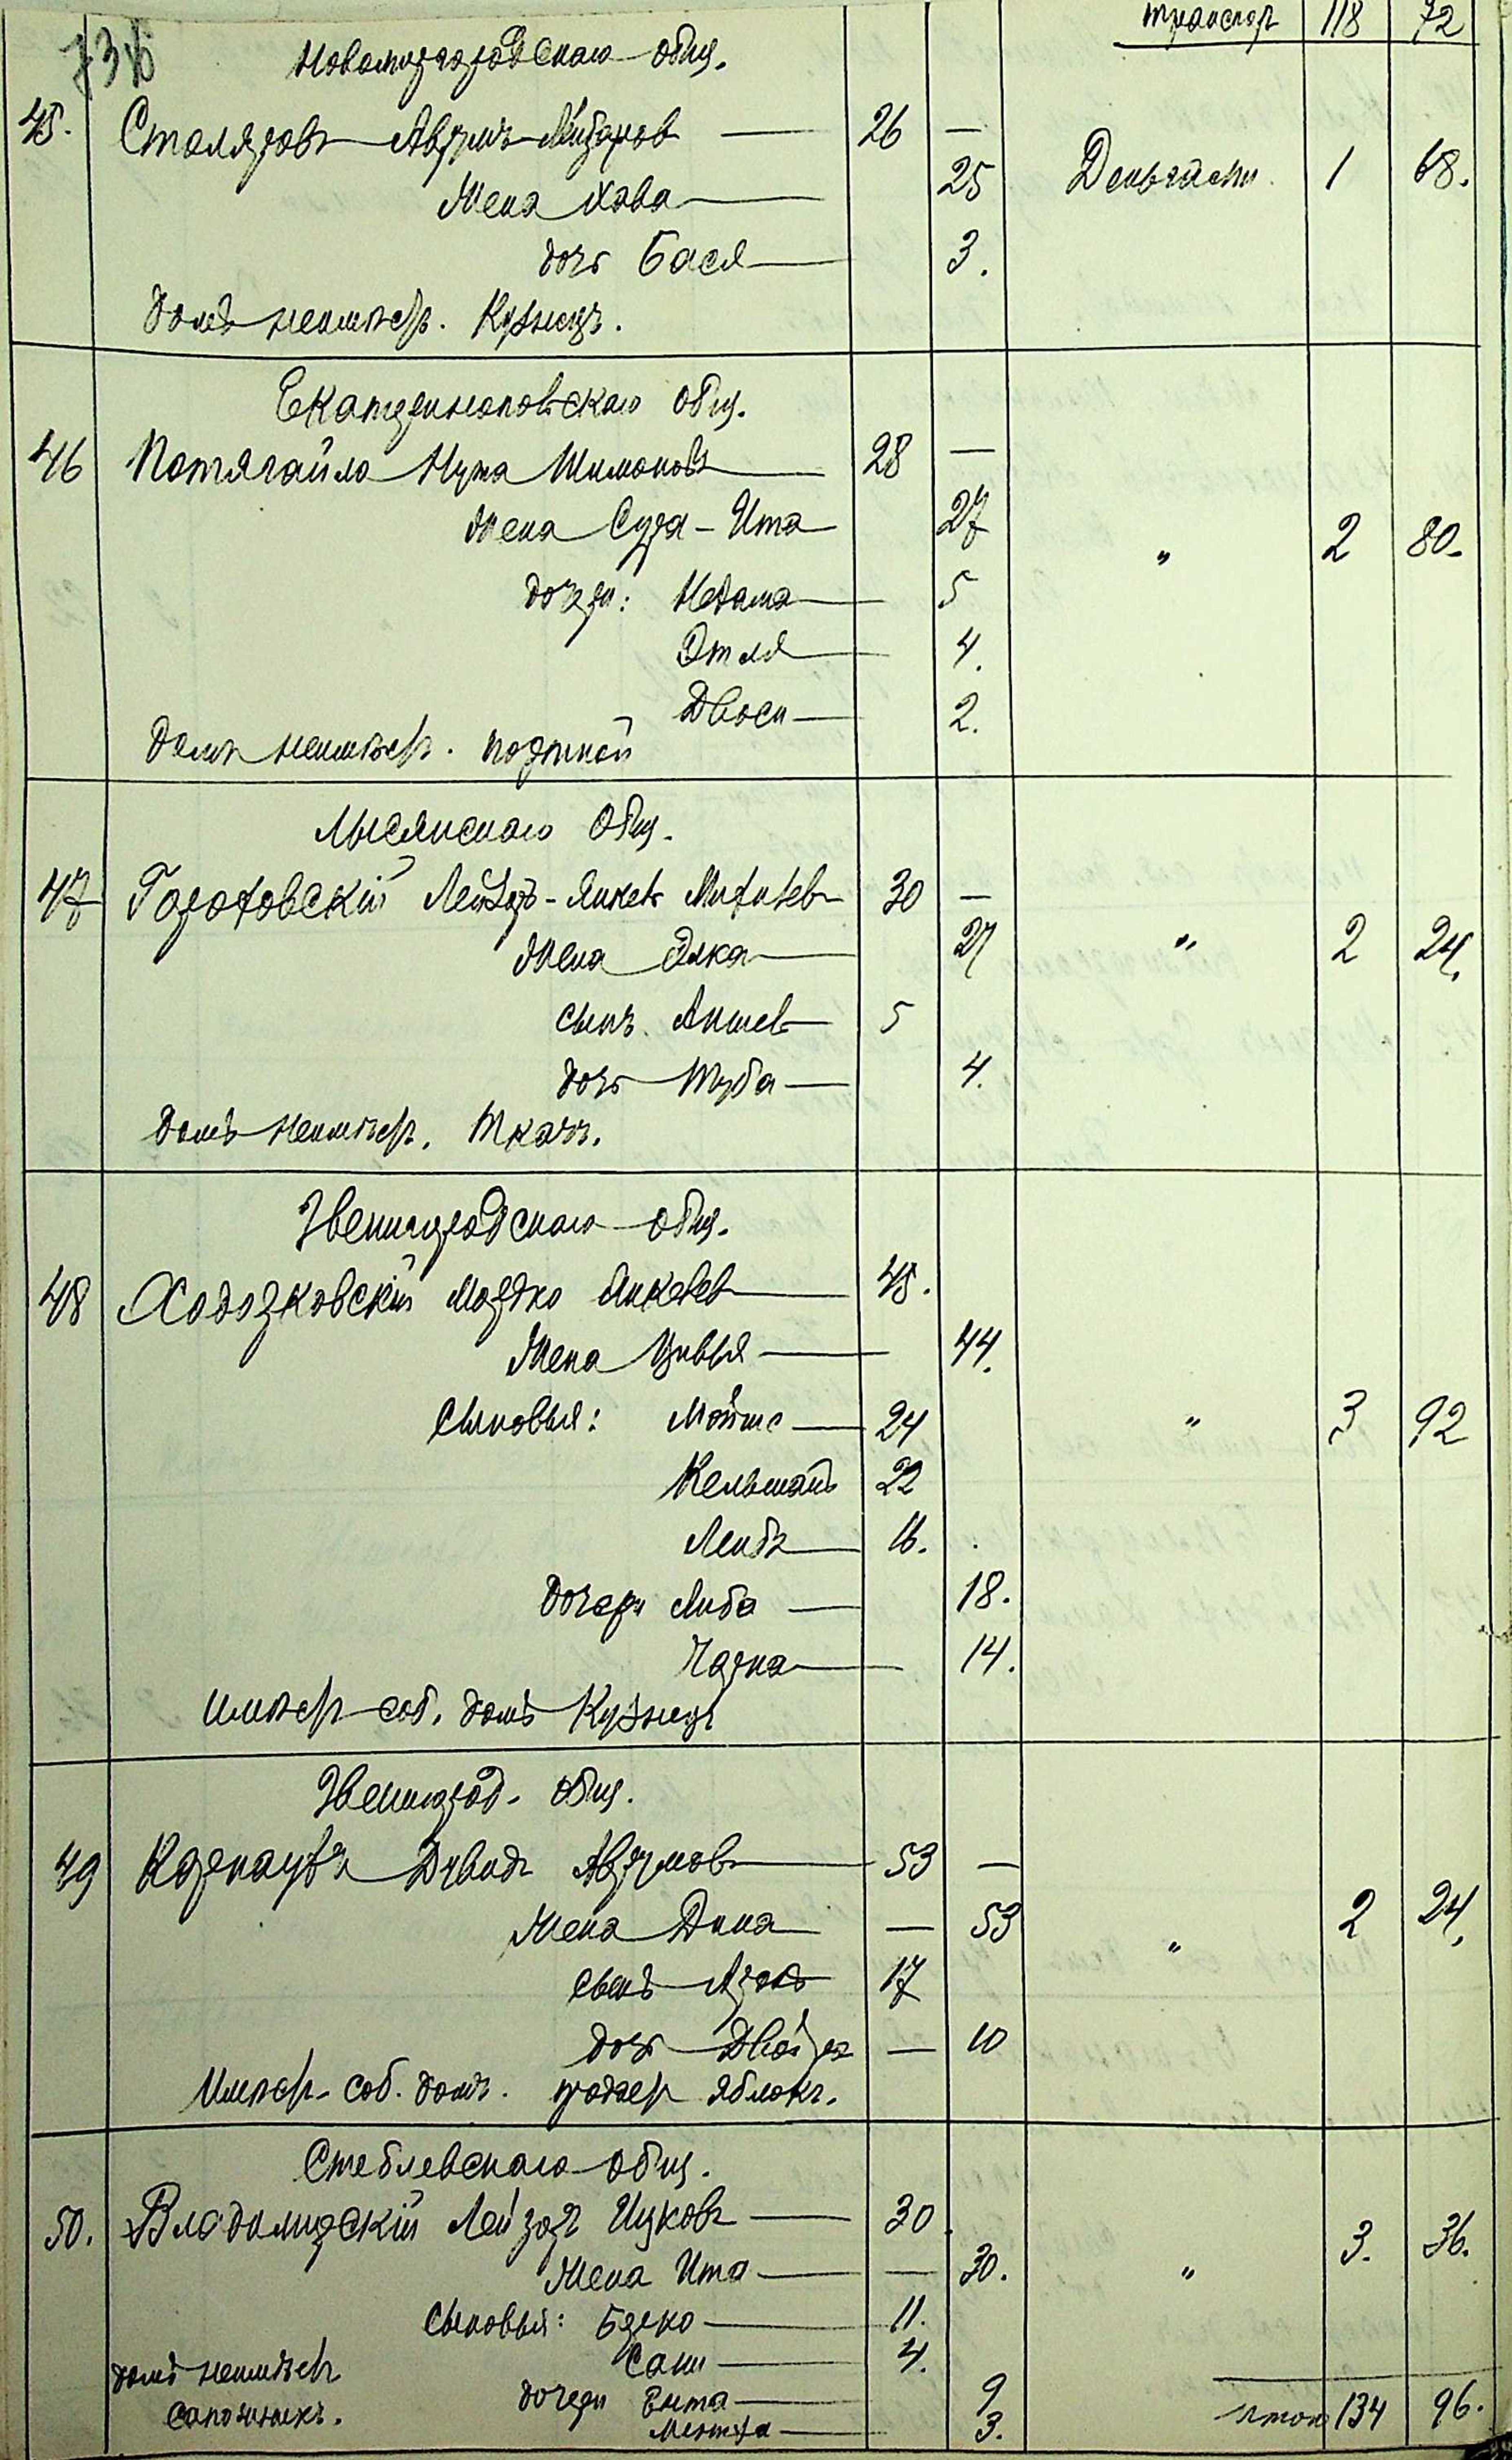 736 транспор 118 72
Новомиргородскаго общ.
45. Столяровъ Аврумъ Лейзоровъ — 26 —
Жена Хава — 25 Деньгами 1 68.
дочь Бася — 3.
домъ неимѣетъ. Кузнецъ.
Екатеринопольскаго общ.
46 Потягайло Нута Шимоновъ — 28 —
жена Сура-Ита — 27 " 2 80.
дочери: Нехама — 5
Этля — 4.
Двося — 2.
домъ неимѣетъ. портной
Лысянскаго Общ.
47 Гороховскій Лейзоръ-Янкель Михилевъ 30 —
жена Элка — 27 " 2 24.
сынъ Аншель — 5
дочь Туба — 4.
домъ неимѣетъ. Ткачъ.
Звенигородскаго общ.
48 Ходорковскій Мордко Янкелевъ — 45.
Жена Цивья — 44.
Сыновья: Мойше — 24 " 3 92
Кельманъ 22
Лейбъ — 16.
дочери Либа — 18.
Чарна — 14.
имѣетъ соб. домъ Кузнецъ
Звенигород. общ.
49 Карнаухъ Дувидъ Аврумовъ — 53 —
Жена Дина — 53 " 2 24.
сынъ 17
дочь Двойра — 10
имѣетъ соб. домъ. продает яблоки.
Стеблевскаго общ.
50. Владомирскій Лейзоръ Ицковъ — 30
Жена Ита — 30. " 3. 36.
Сыновья: Берко — 11.
Сани — 4.
домъ неимѣетъ дочери Ента — 9
сапожникъ. 3. итого 134 96.